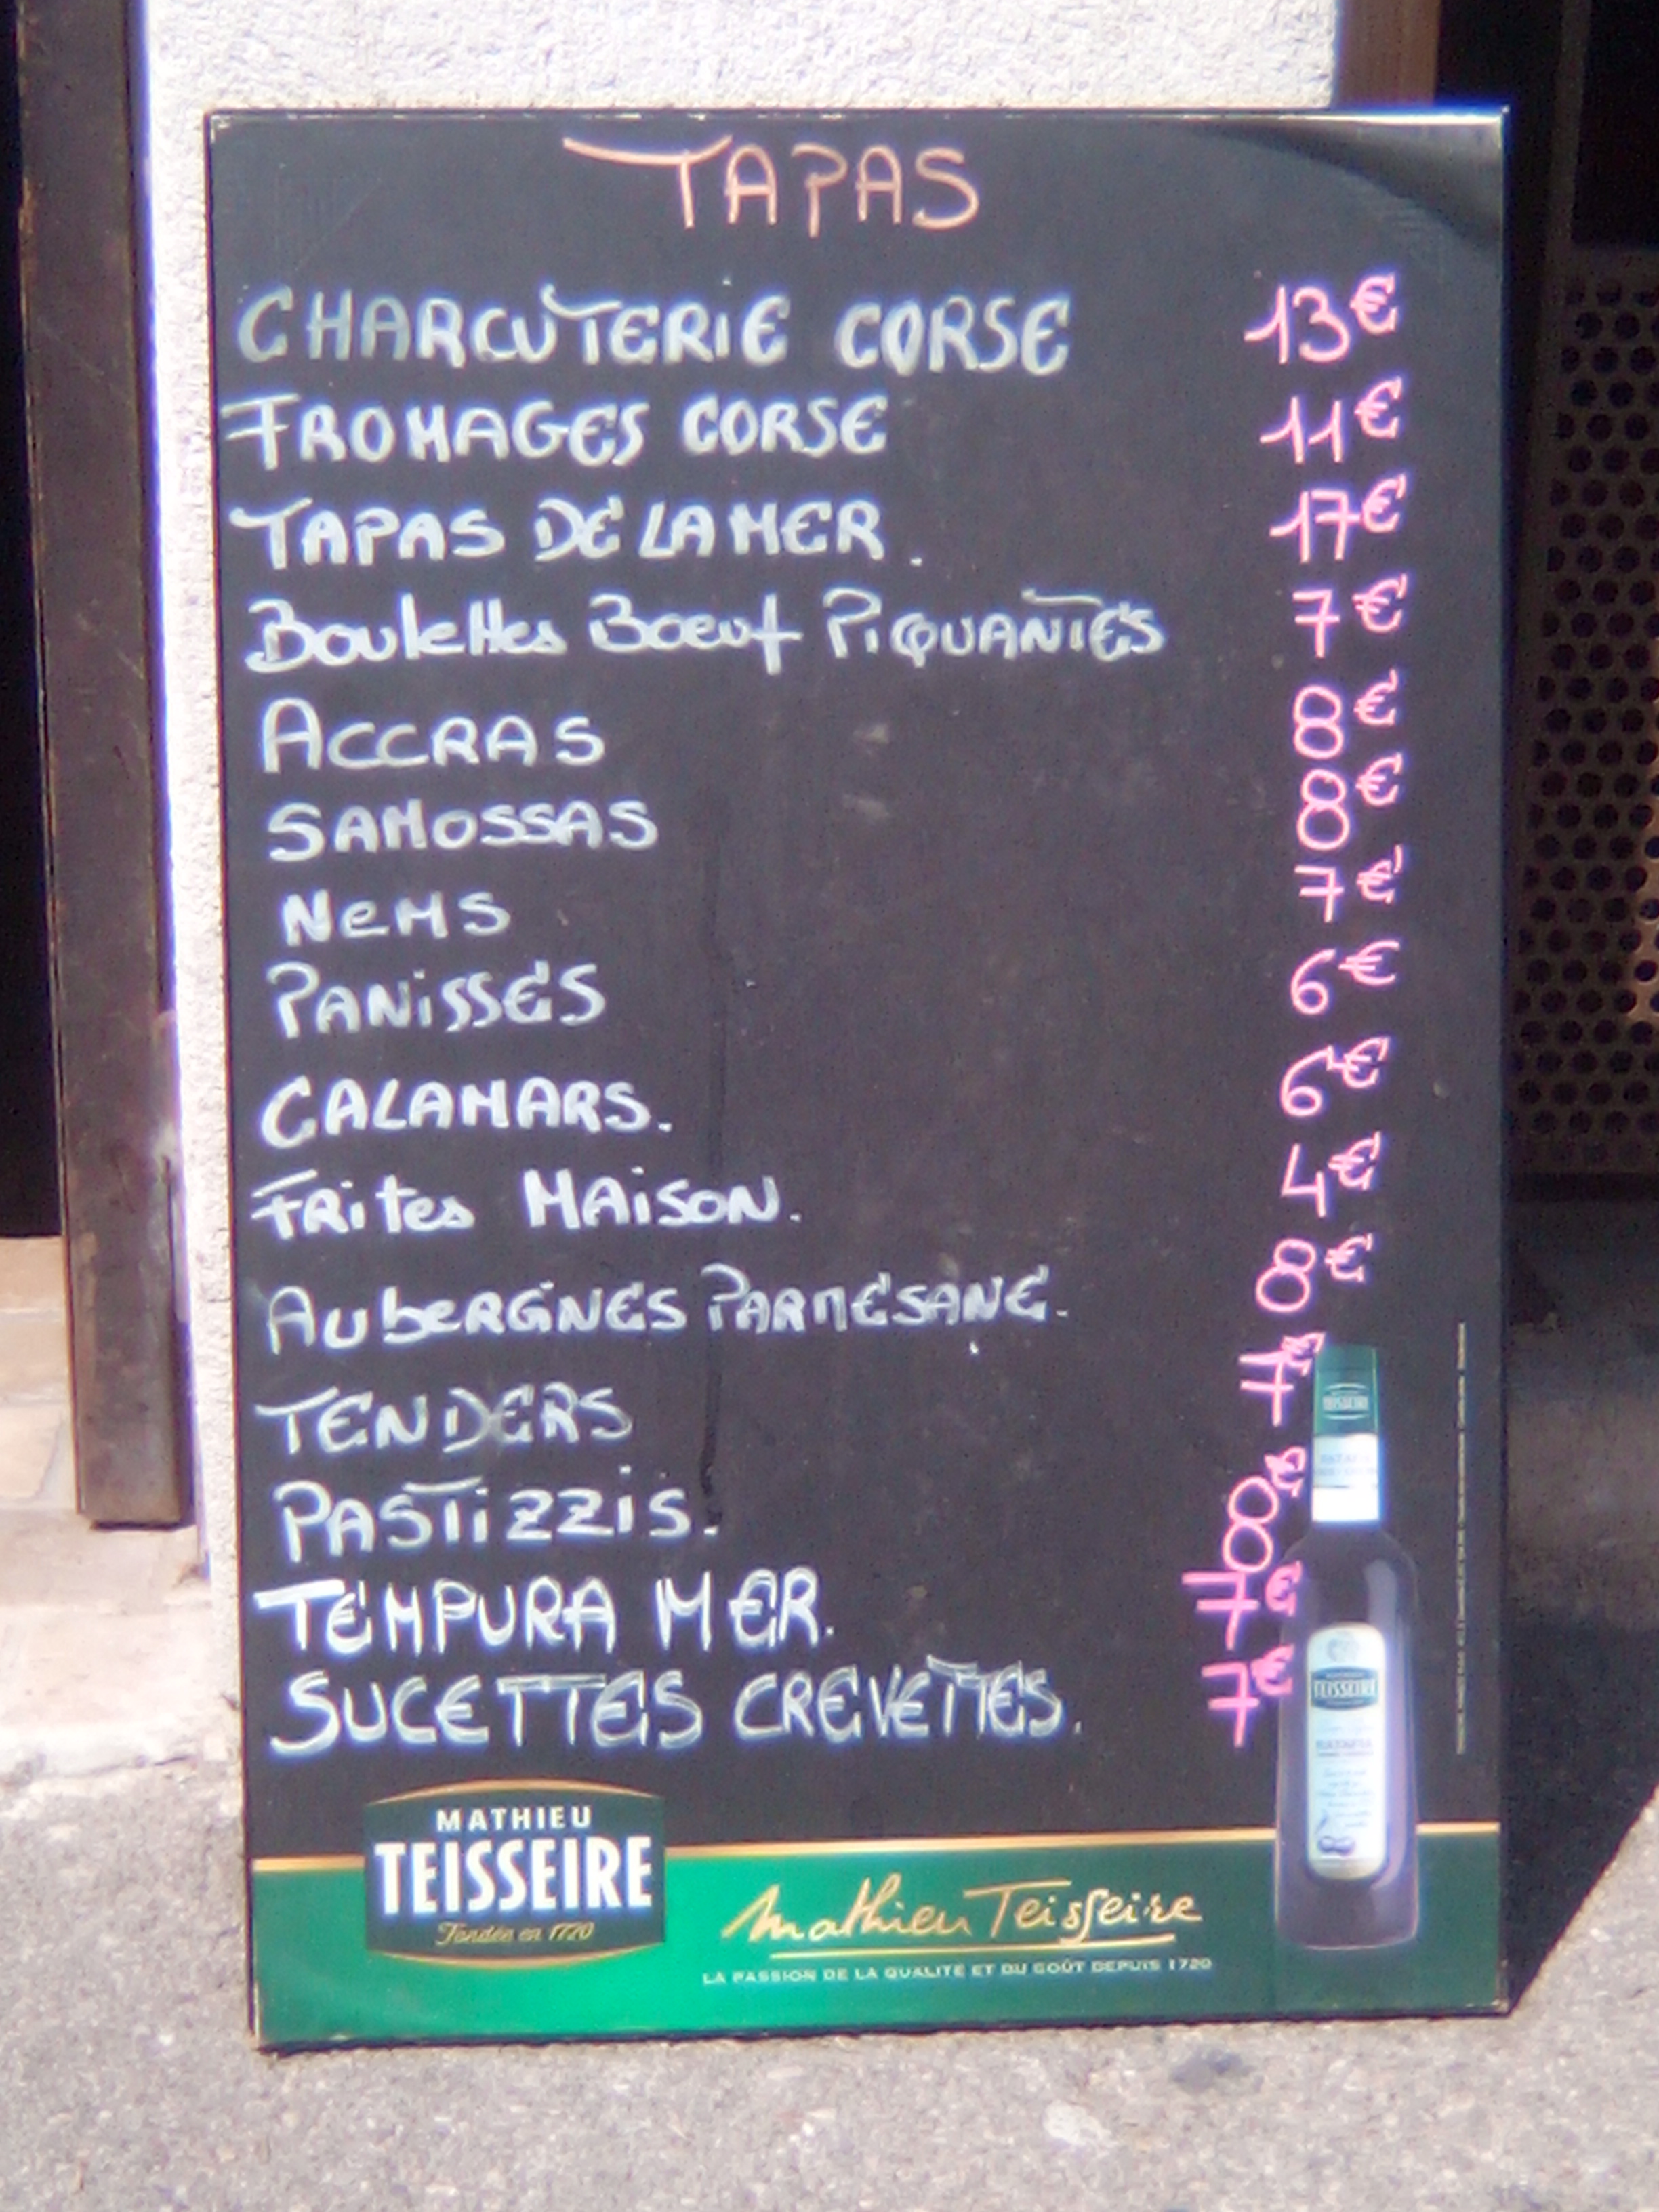 TAPAS
CHARCUTERIE CORSE 13€
FROMAGES CORSE 11€
TAPAS DE LA MER. 17€
Boulettes Boeuf PIQUANTES 7€
ACCRAS 8€
SAMOSSAS 8€
NeMS 7€
PANiSSES 6€
CALAMARS. 6€
FRites MAiSON. 4€
AubeRGiNES PARMESANE. 8€
TENDERS 7€
PASTiZZiS. 8€
TEMPURA MER. 7€
SUCETTES CREVETTES. 7€
MATHIEU
TEISSEIRE
Fondée en 1720
Mathieu Teisseire
LA PASSION DE LA QUALITÉ ET DU GOÛT DEPUIS 1720
TEISSEIRE
TEISSEIRE